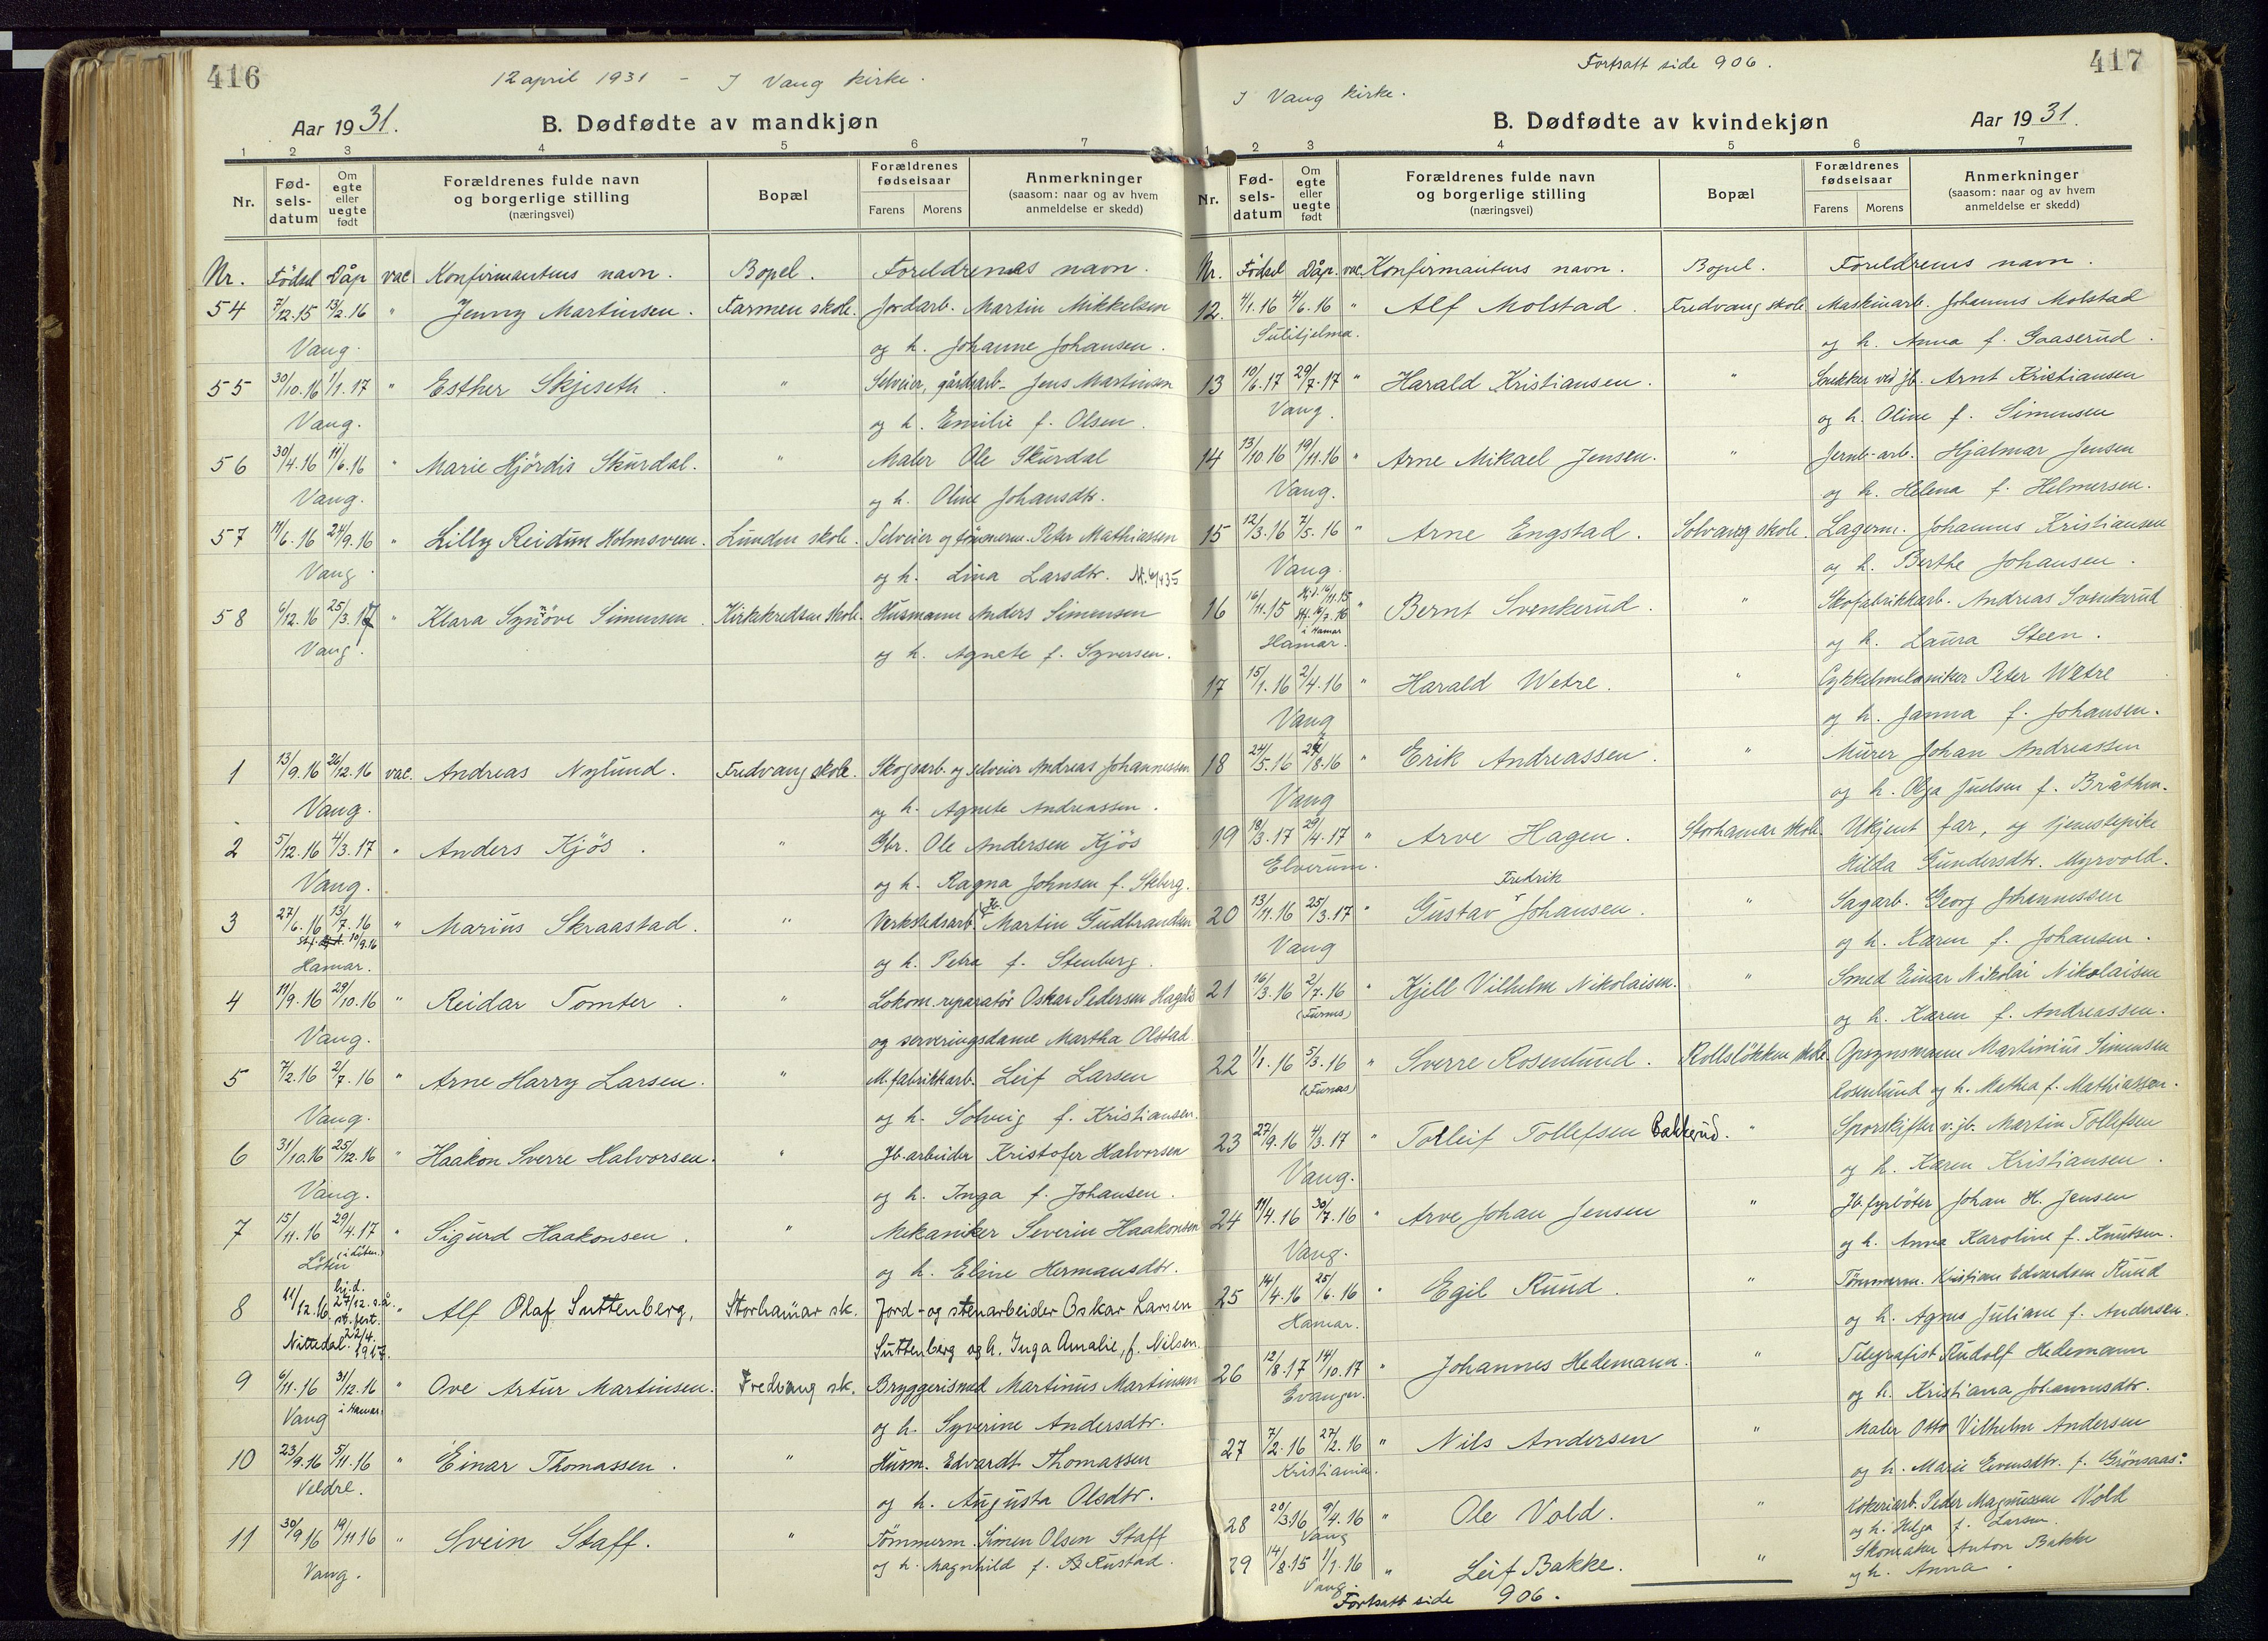 416
12 april 1931 - I Vang kirke.
Aar 1931.
B. Dødfødte av mandkjøn
1 2 3 4 5 6 7
Nr.
Fød-
sels-
datum
Om
egte
eller
uegte
født
Forældrenes fulde navn
og borgerlige stilling
(næringsvei)
Bopæl
Forældrenes
fødselsaar
Farens Morens
Anmerkninger
(saasom: naar og av hvem
anmeldelse er skedd)
Nr. Födsel Dåp vac. Konfirmantens navn. Bopel. Foreldrenes navn.
54 7/12.15 13/2.16 " Jenny Martinsen. Farmen skole. Jordarb. Martin Mikkelsen
Vang. og h. Johanne Johansen.
55 30/10.16 1/1.17 " Esther Skjeseth. " Selveier, gårdsarb. Jens Martinsen
Vang. og h. Emilie f. Olsen.
56 30/4.16 11/6.16 " Marie Hjördis Skurdal. " Maler Ole Skurdal
Vang. og h. Oline Johansdtr.
57 11/6.16 24/9.16 " Lilly Reidun Holmsveen. Lunden skole. Selveier og tömmerm. Peter Mathiassen
Vang. og h. Lina Larsdtr.
58 6/12.16 25/3.17 " Klara Synöve Simensen. Kirkekredsen skole. Husmann Anders Simensen
Vang. og h. Agnete f. Syversen.
1 13/9.16 26/12.16 vac. Andreas Nylund. Fredvang skole. Skogsarb. og selveier Andreas Johannessen
Vang. og h. Agnete Andreassen.
2 5/12.16 4/3.17 " Anders Kjös. " Gbr. Ole Andersen Kjös
Vang. og h. Ragna Johnsen f. Skberg.
3 27/6.16 13/7.16 " Marius Skraastad. " Verkstedsarb. Martin Gudbrandsen
st.f. 10/9.16
Hamar. og h. Petra f. Stenberg.
4 11/9.16 29/10.16 " Reidar Tomter. " Lokom.reparatör Oskar Pedersen
Vang. og serveringsdame Martha Olstad.
5 7/2.16 2/7.16 " Arne Harry Larsen. " M.fabrikkarb. Leif Larsen
Vang. og h. Solveig f. Kristiansen.
6 31/10.16 25/12.16 " Haakon Sverre Halvorsen. " Jb.arbeider Kristofer Halvorsen
Vang. og h. Inga f. Johansen.
7 15/11.16 29/4.17 " Sigurd Haakonsen. " Mekaniker Severin Haakonsen
Löten (i Löten.) og h. Eline Hermansdtr.
8 11/12.16 hj.d. 27/12. s.å. st. fest. 22/4. 1917. " Alf Olaf Suttenberg, Storhamar sk. Jord- og stenarbeider Oskar Larsen
Nittedal. Suttenberg og h. Inga Amalie, f. Nilsen.
9 6/11.16 31/12.16 " Ove Artur Martinsen. Fredvang sk. Bryggerismed Martinus Martinsen
Vang i Hamar. og h. Syverine Andersdtr.
10 23/9.16 5/11.16 " Einar Thomassen. " Husm. Edvardt Thomassen
Veldre. og h. Augusta Olsdtr.
11 30/9.16 19/11.16 " Svein Staff. " Tömmerm. Simen Olsen Staff
Vang. og h. Magnhild f. Rustad.
Fortsatt side 906.
417
I Vang kirke.
B. Dødfødte av kvindekjøn
Aar 1931.
1 2 3 4 5 6 7
Nr.
Fød-
sels-
datum
Om
egte
eller
uegte
født
Forældrenes fulde navn
og borgerlige stilling
(næringsvei)
Bopæl
Forældrenes
fødselsaar
Farens Morens
Anmerkninger
(saasom: naar og av hvem
anmeldelse er skedd)
Nr. Födsel Dåp. vac. Konfirmantens navn. Bopel. Foreldrenes navn.
12. 4/1.16 4/6.16 " Alf Molstad. Fredvang skole Maskinarb. Johannes Molstad
Sulitjelma. og h. Anna f. Gaaserud.
13 10/6.17 29/7.17 " Harald Kristiansen. " Snekker ved jb. Arnt Kristiansen
Vang. og h. Oline f. Simensen
14 13/10.16 19/11.16 " Arne Mikael Jensen. " Jernb-arb. Hjalmar Jensen
Vang. og h. Helena f. Helmersen.
15 12/3.16 7/5.16 " Arne Engstad. Solvang skole. Lagerm. Johannes Kristiansen
Vang. og h. Berthe Johansen.
16 16/11.15 " Bernt Svenkerud. " Skofabrikkarb. Andreas Svenkerud
i Hamar
Hamar. og h. Laura Steen.
17 15/1.16 2/4.16 " Harald Wetre. " Cykkelmekaniker Peter Wetre
Vang og h. Janna f. Johansen.
18 24/5.16 27/8.16 " Erik Andreassen. " Murer Johan Andreassen
Vang og h. Olga Juelsen f. Bråthen.
19 18/3.17 29/4.17 " Arve Hagen. Storhamar skole Ukjent far, og tjenestepike
Elverum. Hilda Gundersdtr. Myrvold.
Fredrik
20 13/11.16 25/3.17 " Gustav Johansen. " Sagarb. Georg Johannessen
Vang og h. Karen f. Johansen.
21 16/3.16 2/7.16 " Kjell Vilhelm Nikolaisen. " Smed Einar Nikolai Nikolaisen
(Furnes) og h. Karen f. Andreassen.
22 1/1.16 5/3.16 " Sverre Rosenlund. Rollslökken skole. Opsynsmann Martinius Simensen
(Furnes) Rosenlund og h. Mathea f. Mathiassen.
23 27/9.16 4/3.17 " Torleif Tollefsen Bakkerud. " Sporskifter v. jb. Martin Tollefsen
Vang. og h. Karen Kristiansen.
24 11/4.16 30/7.16 " Arve Johan Jensen " Jb.fyrböter Johan H. Jensen
Vang. og h. Anna Karoline f. Knutsen.
25 14/4.16 25/6.16 " Egil Ruud. " Tömmerm. Kristian Edvardsen Ruud
Hamar. og h. Agnes Juliane f. Andersen.
26 12/8.17 14/10.17 " Johannes Hedemann. " Telegrafist Rudolf Hedemann
Evanger. og h. Kristiana Johannesdtr.
27 7/2.16 27/2.16 " Nils Andersen " Maler Otto Vilhelm Andersen
Kristiania. og h. Marie Evensdtr. f. Grönsaas.
28 20/3.16 9/4.16 " Ole Vold. " Kokeriarb. Peder Magnussen Vold
Vang og h. Helga f. Larsen.
29 14/8.15 1/1.16 " Leif Bakke. " Skomaker Anton Bakke
Vang. og h. Anna.
Fortsatt side 906.